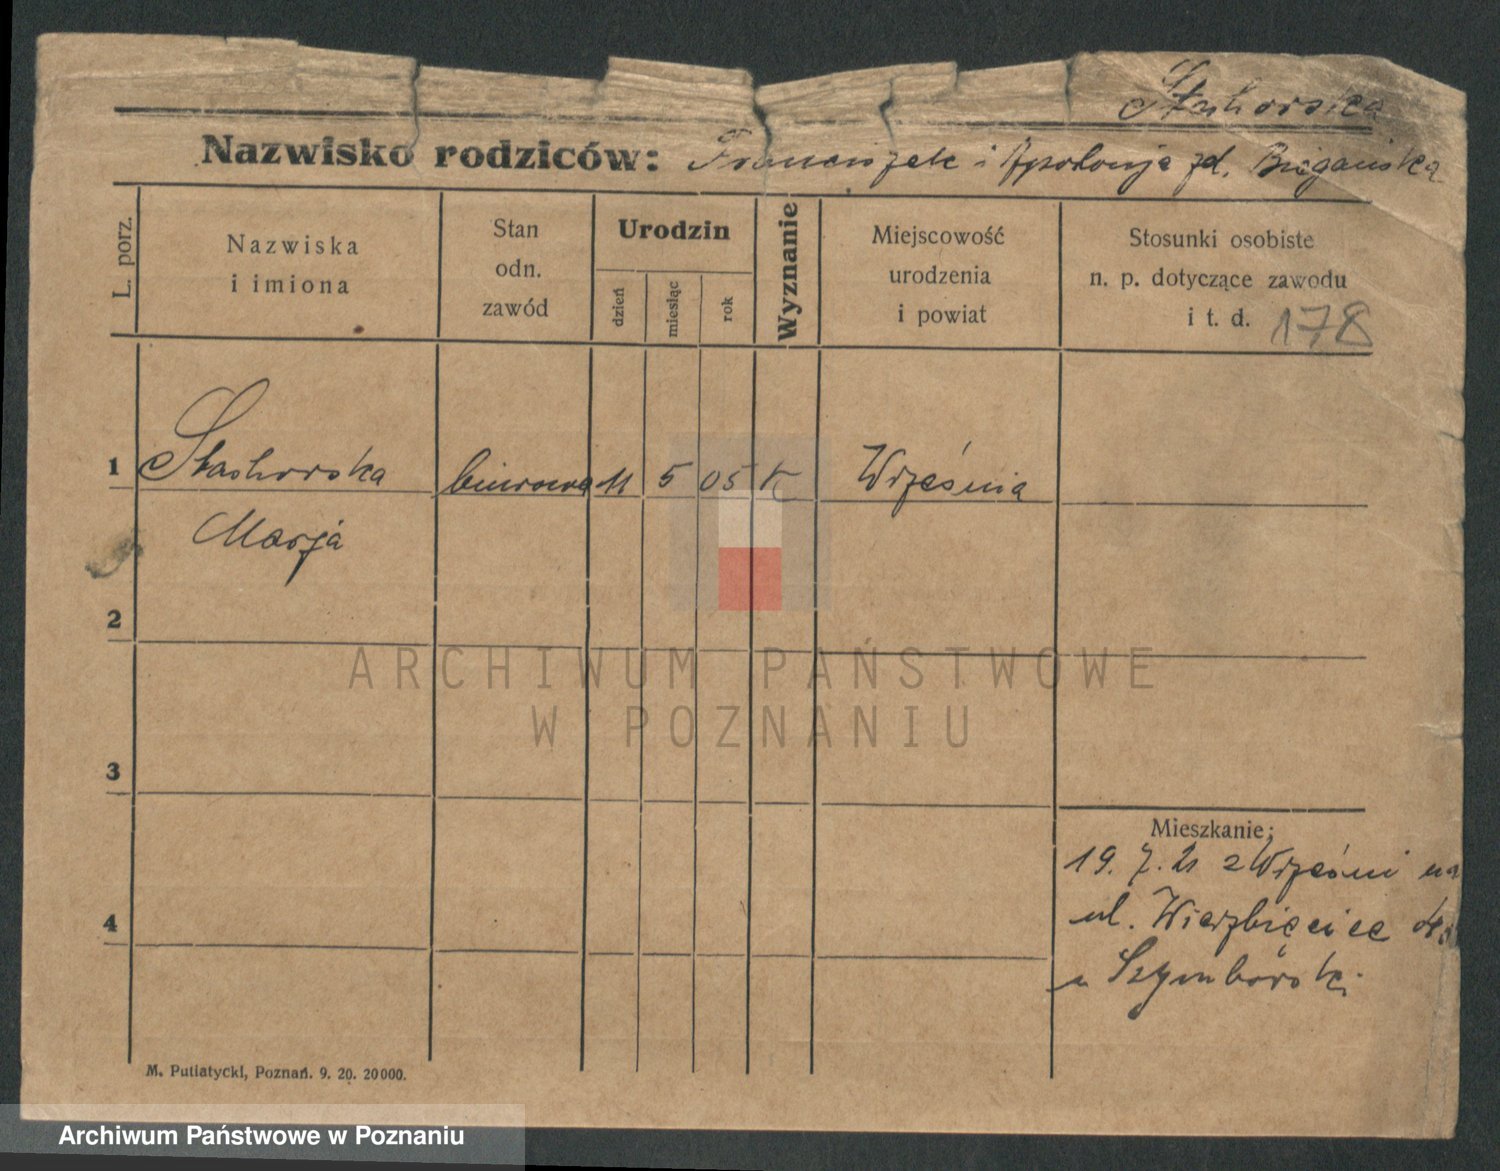 Stachorska
Nazwisko rodziców: Franciszek i Apolonja zd. Biegańska
L. porz.
Nazwiska
i imiona
Stan
odn.
zawód
Urodzin
dzień
miesiąc
rok
Wyznanie
Miejscowość
urodzenia
i powiat
Stosunki osobiste
n. p. dotyczące zawodu
i t. d. 178
1 Stachorska biurowa 11 5 05 K Września
Marja
2
3
4
Mieszkanie:
19. 7. 21 z Wrześni na
ul. Wierzbięcice
u Szymborski
M. Putiatycki, Poznań. 9. 20. 20000.
ARCHIWUM PAŃSTWOWE
W POZNANIU
Archiwum Państwowe w Poznaniu